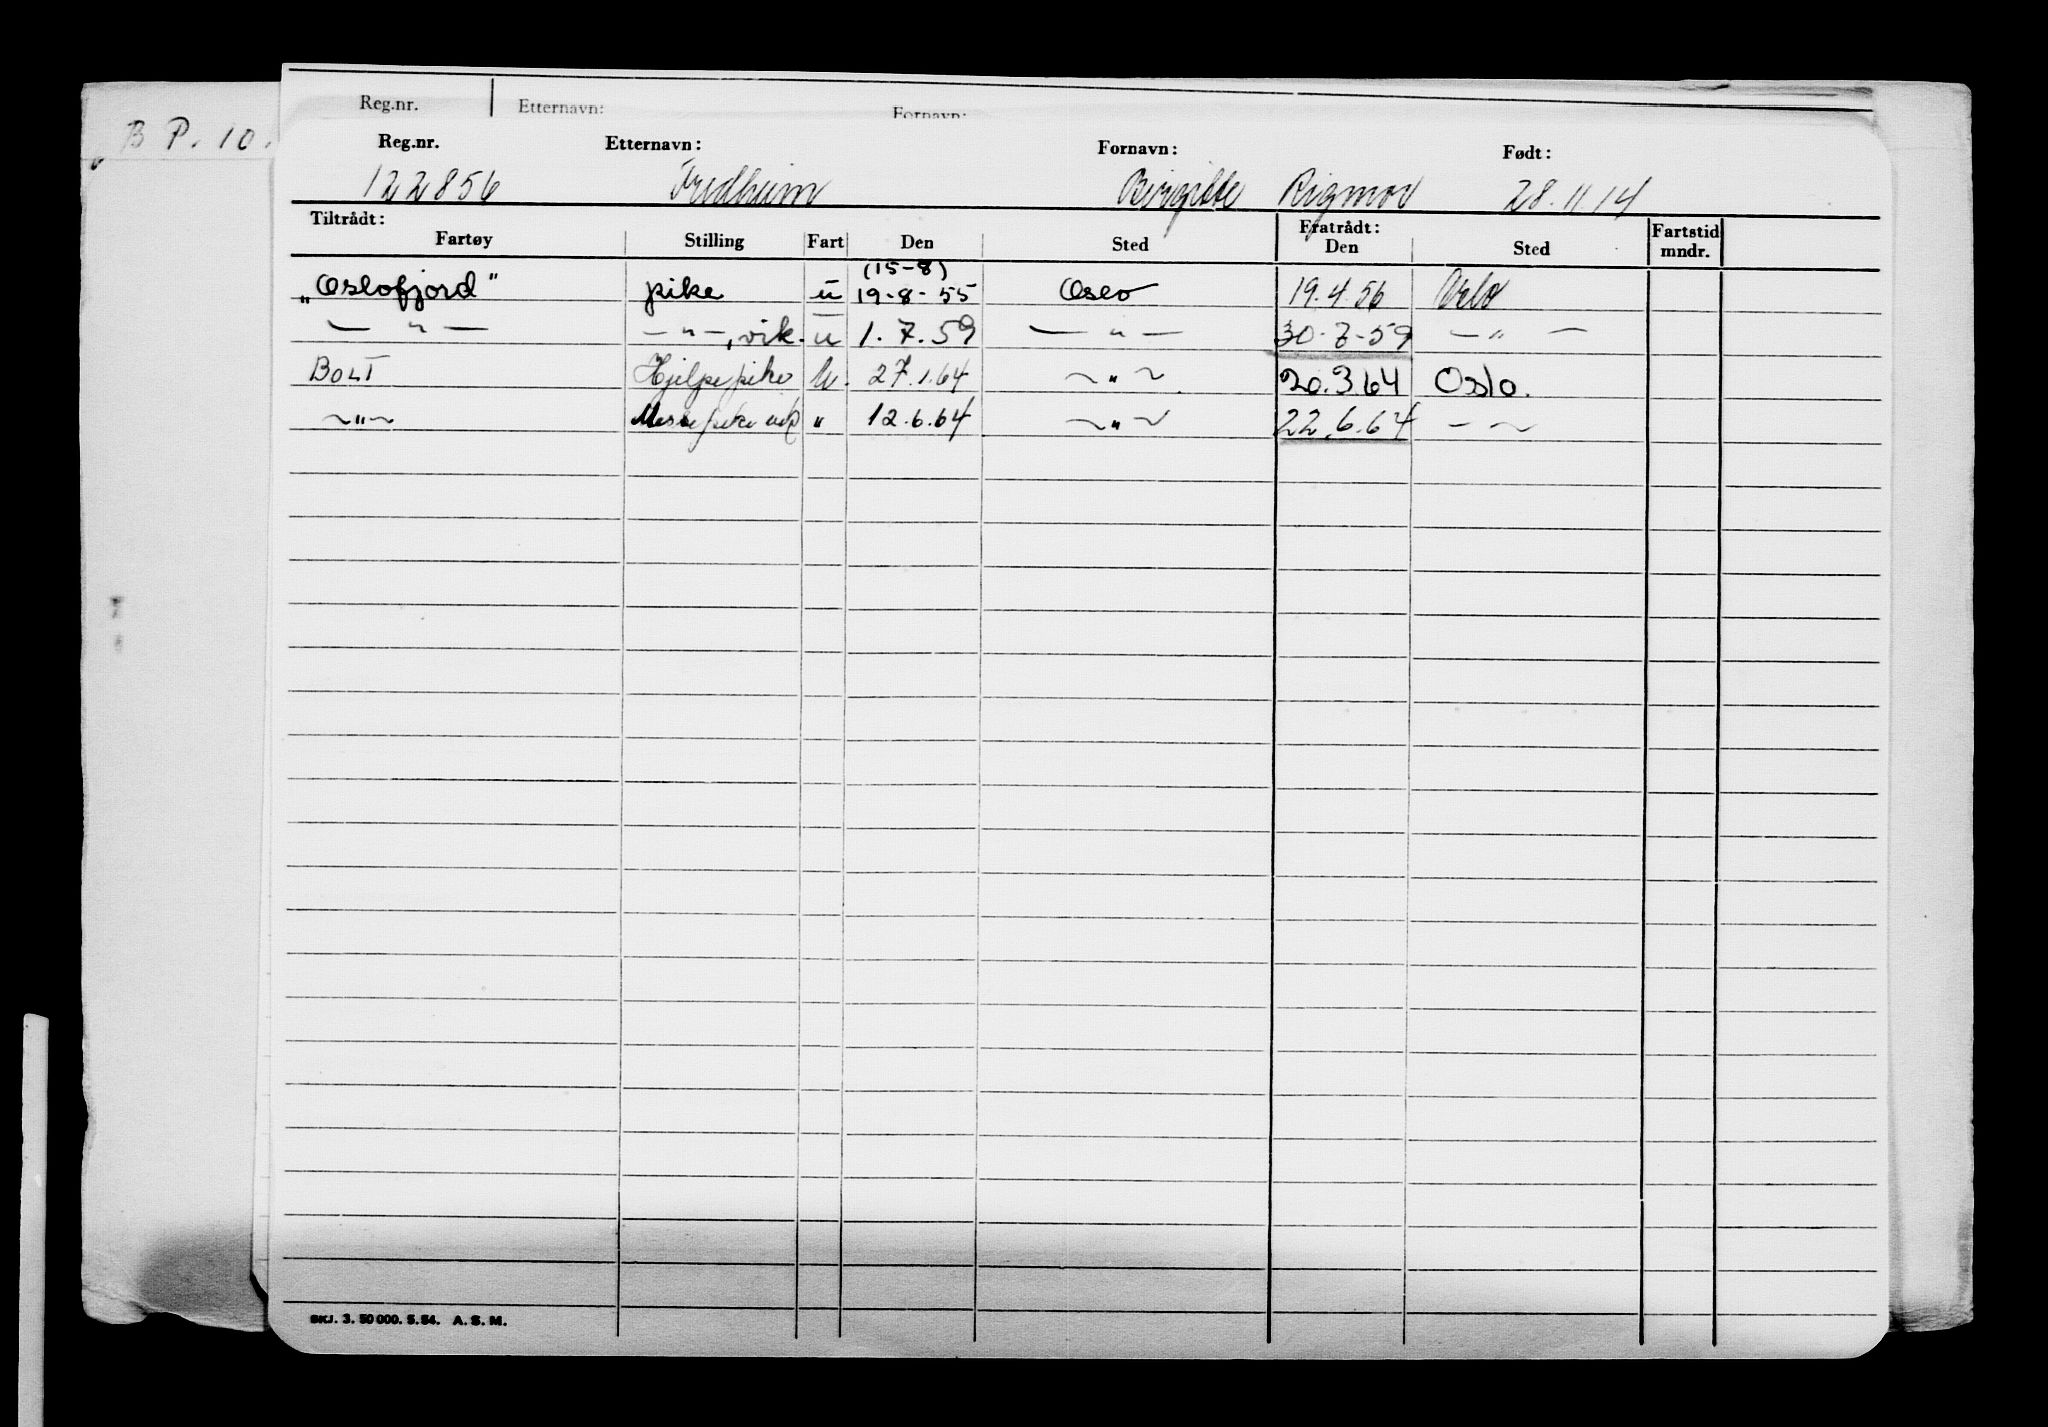 B P. 10.
Reg.nr. Etternavn: Fornavn:
Reg.nr. Etternavn: Fornavn: Født:
122856 Fredheim Birgitte Rigmor 28.11.14
Tiltrådt: Fratrådt:
Fartøy Stilling Fart Den Sted Den Sted Fartstid mndr.
(15-8)
„Oslofjord" pike u 19-8-55 Oslo 19.4.56 Oslo
— " — — " —, vik. u 1.7.59 — " — 30-7-59 — " —
BOLT Hjelpepike U. 27.1.64 ~ " ~ 20.3.64 Oslo.
~ " ~ Messepike " 12.6.64 ~ " ~ 22.6.64 — ~
SKJ. 3. 50 000. 5.54. A. S. M.